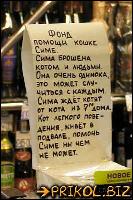 Фонд
помощи кошке
Симе.
Сима брошена
котом и людьми.
Она очень одинока,
это может слу-
читься с каждым.
Сима ждёт котят
от кота из 7го дома
Кот легкого пове-
дения, живёт в
подвале, помочь
Симе ни чем
не может.
НОВОЕ
PRIKOL.BIZ